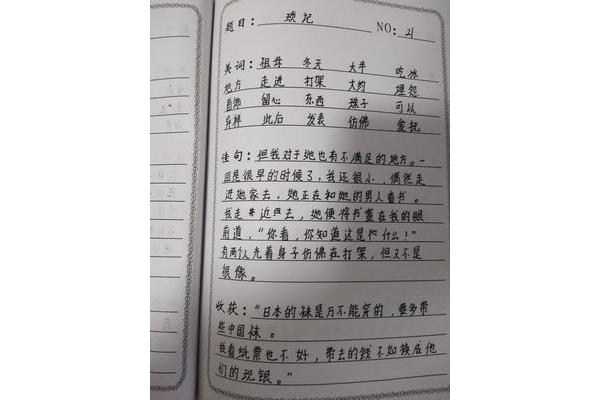 题目：琐记 NO：21
美词：祖母 冬天 大半 吃冰
地方 走进 打架 大约 埋怨
看佛 留心 东西 珠子 可以
异样 此后 发表 仿佛
佳句：但我对于她也有不满足的地方。一
回是很早的时候了，我还很小，偶然走
进她家去，她正在和她的男人看书。
我走近去，她便将书塞在我的眼
前道，“你看，你知道这是什么？”
有两个人光着身子仿佛在打架，但又不是
很像。
收获：“日本的袜是万不能穿的，要多带
些中国袜。
我看纸票也不好，带去的钱不如换成他
们的现银。”